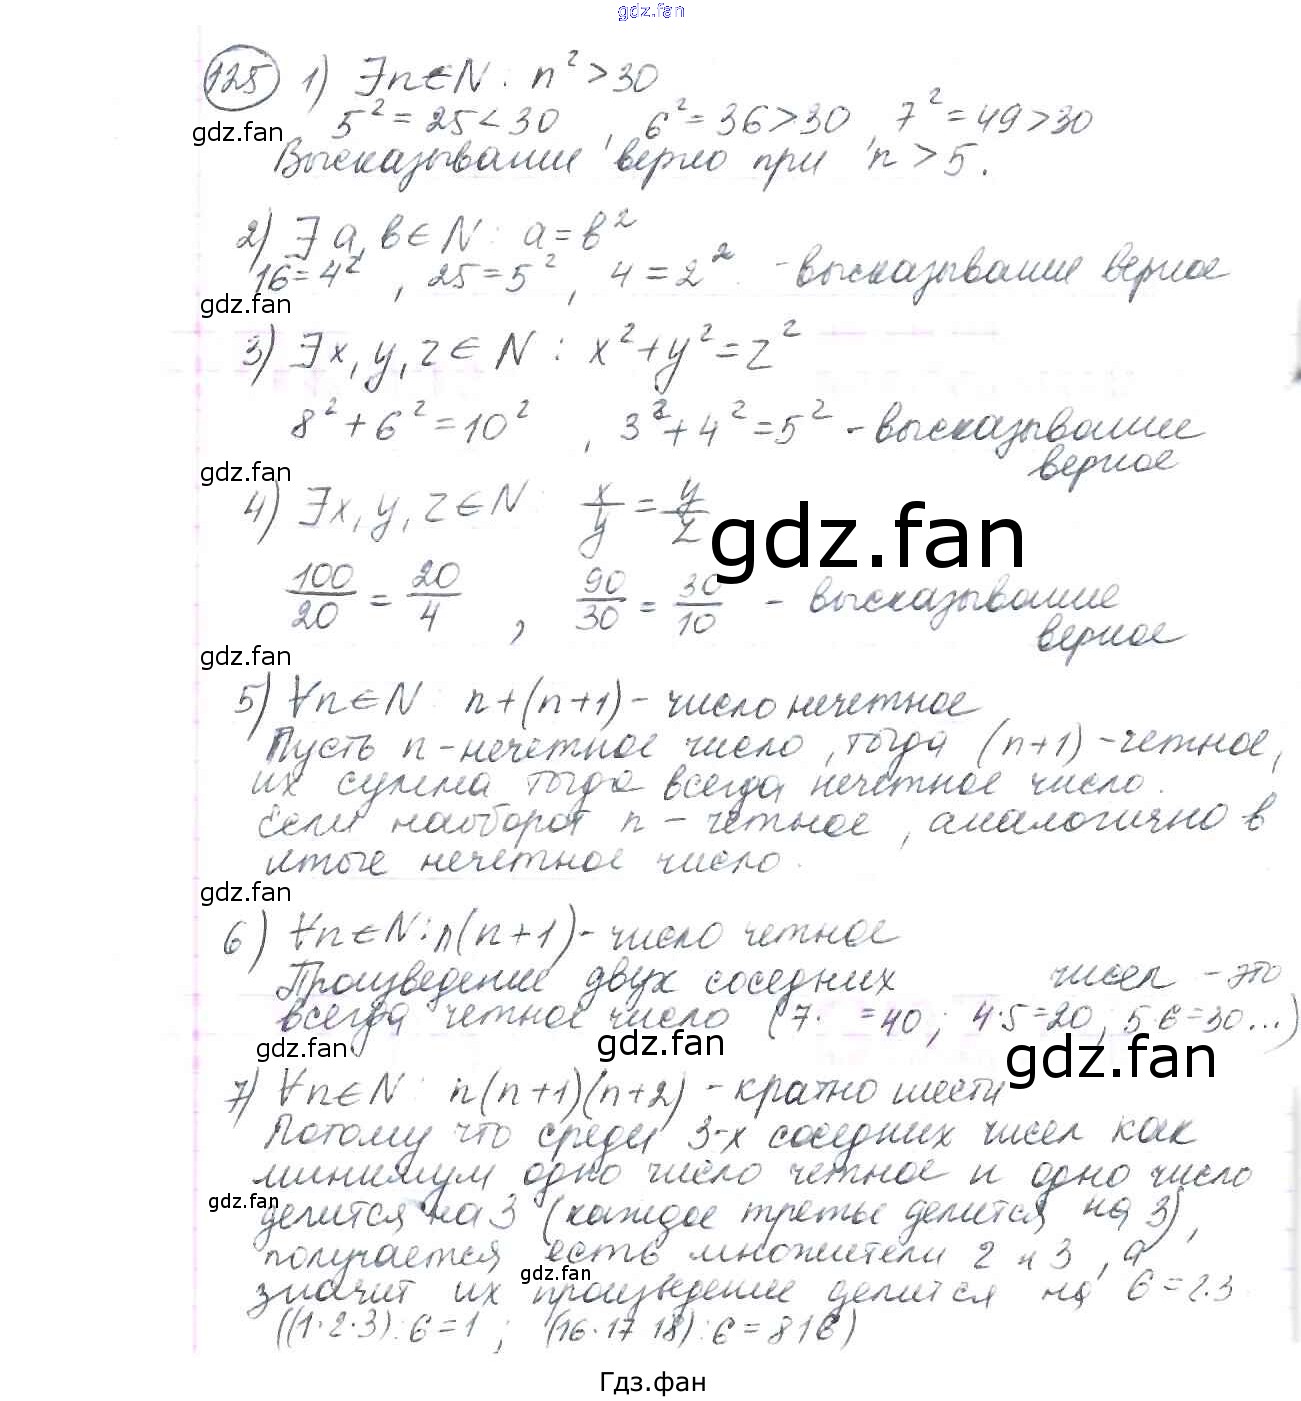 gdz.fan
125 1) ∃n∈N: n² > 30
5² = 25 < 30 , 6² = 36 > 30 , 7² = 49 > 30
gdz.fan
Высказывание верно при n > 5.
2) ∃ a, b ∈ N: a = b²
16 = 4² , 25 = 5² , 4 = 2² - высказывание верное
gdz.fan
3) ∃x, y, z ∈ N : x² + y² = z²
8² + 6² = 10² , 3² + 4² = 5² - высказывание
верное
gdz.fan
4) ∃x, y, z ∈ N: x/y = y/z
gdz.fan
100/20 = 20/4 , 90/30 = 30/10 - высказывание
верное
gdz.fan
5) ∀n∈N: n + (n+1) - число нечетное
Пусть n - нечетное число, тогда (n+1) - четное,
их сумма тогда всегда нечетное число.
Если наоборот n - четное, аналогично в
итоге нечетное число.
gdz.fan
6) ∀n∈N: n(n+1) - число четное
Произведение двух соседних чисел - это
всегда четное число (7· =40; 4·5=20; 5·6=30...)
gdz.fan gdz.fan gdz.fan
7) ∀n∈N: n(n+1)(n+2) - кратно шести
Потому что среди 3-х соседних чисел как
минимум одно число четное и одно число
gdz.fan
делится на 3 (каждое третье делится на 3),
получается есть множители 2 и 3, а
gdz.fan
значит их произведение делится на 6 = 2·3
((1·2·3):6=1 ; (16·17·18):6=816)
Гдз.фан